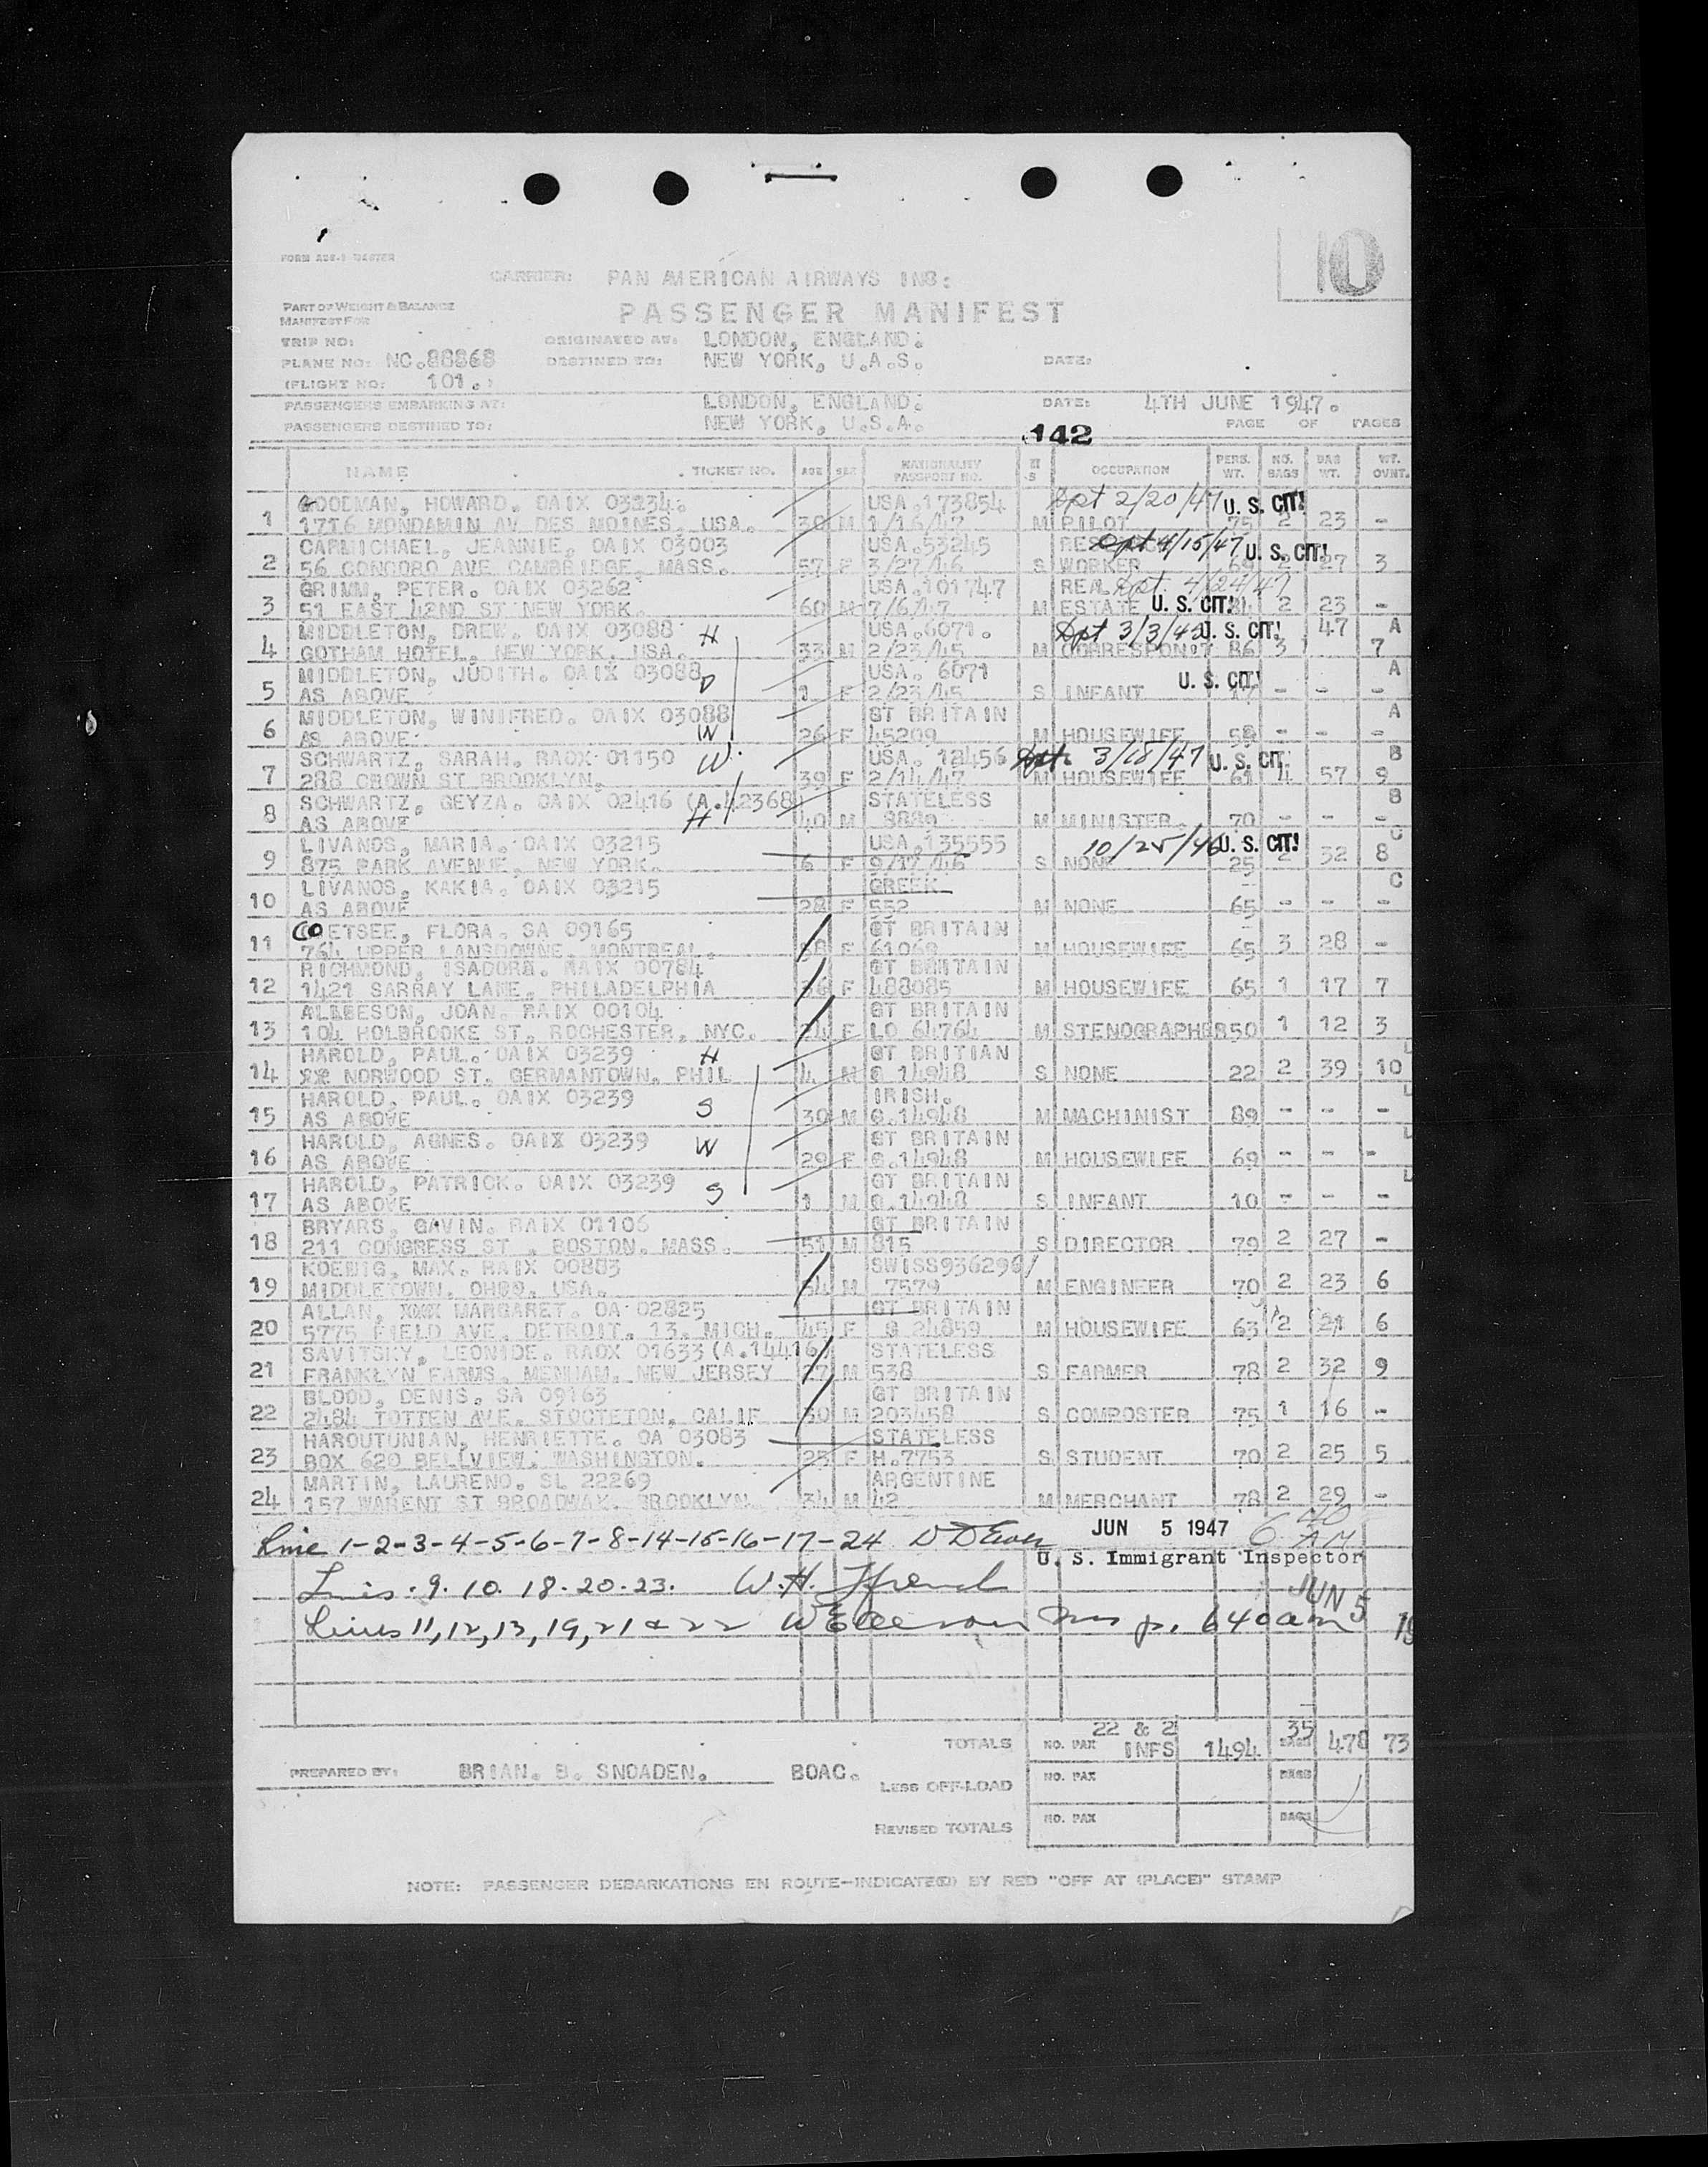 10
FORM
MASTER
CARRIER: PAN AMERICAN AIRWAYS INS:
PART OF WEIGHT & BALANCE
MANIFEST FOR
PASSENGER MANIFEST
TRIP NO: ORIGINATED AT: LONDON, ENGLAND.
PLANE NO: NC.88868 DESTINED TO: NEW YORK, U.A.S. DATE:
(FLIGHT NO: 101.)
PASSENGERS EMBARKING AT: LONDON, ENGLAND. DATE: 4TH JUNE 1947.
PASSENGERS DESTINED TO: NEW YORK, U.S.A. 142 PAGE OF PAGES
NAME TICKET NO. AGE SEX NATIONALITY PASSPORT NO. M S OCCUPATION PERS. WT. NO. BAGS BAG WT. WT. OVNT.
GOODMAN, HOWARD. OAIX 03234. USA.173854 Dpt 2/20/47 U. S. CIT!
1 1716 MONDAMIN AV DES MOINES, USA. 30 M 1/16/47 M PILOT 75 2 23 -
CARMICHAEL, JEANNIE, OAIX 03003 USA.53245 Dpt 4/15/47 U. S. CIT!
2 56 CONCORD AVE CAMBRIDGE, MASS. 57 F 3/27/46 S WORKER 69 2 27 3
GRIMM, PETER. OAIX 03262 USA.101747 REAL Dpt. 4/24/47
3 51 EAST 42ND ST NEW YORK. 60 M 7/6/47 M ESTATE U. S. CIT! 84 2 23 -
MIDDLETON, DREW. OAIX 03088 H USA.6071. Dpt 3/3/45 U. S. CIT! 47 A
4 GOTHAM HOTEL, NEW YORK, USA. 33 M 2/23/45 M CORRESPON:T 86 3 7
MIDDLETON, JUDITH. OAIX 03088 D USA. 6071 U. S. CIT! A
5 AS ABOVE 1 F 2/23/45 S INFANT 17 - - -
MIDDLETON, WINIFRED. OAIX 03088 GT BRITAIN A
6 AS ABOVE W 26 F 45209 M HOUSEWIFE 58 - - -
SCHWARTZ, SARAH. RAOX 01150 W. USA. 12456 Dpt. 3/18/47 U. S. CIT. B
7 288 CROWN ST BROOKLYN. 39 F 2/14/47 M HOUSEWIFE 61 4 57 9
SCHWARTZ, GEYZA. OAIX 02416 (A.42368) STATELESS B
8 AS ABOVE H 40 M 8889 M MINISTER. 70 - - -
LIVANOS, MARIA. OAIX 03215 USA.135555 10/25/46 U. S. CIT! C
9 875 PARK AVENUE, NEW YORK. 6 F 9/17/46 S NONE 25 2 32 8
LIVANOS, KAKIA. OAIX 03215 GREEK C
10 AS ABOVE 28 F 552 M NONE 65 - - -
COETSEE, FLORA. SA 09165 GT BRITAIN
11 764 UPPER LANSDOWNE, MONTREAL. 58 F 61069 M HOUSEWIFE 65 3 28 -
RICHMOND, ISADORA. RAIX 00784 GT BRITAIN
12 1421 SARRAY LANE, PHILADELPHIA 36 F 488085 M HOUSEWIFE 65 1 17 7
ALBESON, JOAN. RAIX 00104 GT BRITAIN
13 104 HOLBROOKE ST, ROCHESTER, NYC. 24 F LO 64764 M STENOGRAPHER 50 1 12 3
HAROLD, PAUL. OAIX 03239 H GT BRITIAN L
14 XX NORWOOD ST. GERMANTOWN, PHIL 4 M G 14948 S NONE 22 2 39 10
HAROLD, PAUL. OAIX 03239 S IRISH. L
15 AS ABOVE 30 M G.14948 M MACHINIST 89 - - -
HAROLD, AGNES. OAIX 03239 W GT BRITAIN L
16 AS ABOVE 29 F G.14948 M HOUSEWIFE 69 - - -
HAROLD, PATRICK. OAIX 03239 S GT BRITAIN L
17 AS ABOVE 1 M G.14948 S INFANT 10 - - -
BRYARS, GAVIN. RAIX 01106 GT BRITAIN
18 211 CONGRESS ST, BOSTON, MASS. 51 M 815 S DIRECTOR 79 2 27 -
KOENIG, MAX. RAIX 00883 SWISS936296/
19 MIDDLETOWN. OHOO, USA. 54 M 7579 M ENGINEER 70 2 23 6
ALLAN, XXXX MARGARET. OA 02825 GT BRITAIN
20 5775 FIELD AVE. DETROIT. 13. MICH. 45 F G 24859 M HOUSEWIFE 63 2 21 6
SAVITSKY, LEONIDE. RAOX 01633 (A.14416) STATELESS
21 FRANKLYN FARMS, MENHAM. NEW JERSEY 27 M 538 S FARMER 78 2 32 9
BLOOD, DENIS. SA 09163 GT BRITAIN
22 2484 TOTTEN AVE. STOCTETON, CALIF 30 M 203458 S COMPOSTER 75 1 16 -
HAROUTUNIAN, HENRIETTE. OA 03083 STATELESS
23 BOX 620 BELLVIEW. WASHINGTON. 25 F H.7753 S STUDENT 70 2 25 5
MARTIN, LAURENO. SL 22269 ARGENTINE
24 157 WARENT ST BROADWAX. BROOKLYN 34 M 42 M MERCHANT 78 2 29 -
Line 1-2-3-4-5-6-7-8-14-15-16-17-24 JUN 5 1947 6 40 AM
U. S. Immigrant Inspector
Lines. 9. 10. 18. 20. 23. W.H. JUN 5
Lines 11, 12, 13, 19, 21 & 22 640am 19
TOTALS NO. PAX 22 & 2 INFS 1494 35 BAGS 478 73
PREPARED BY: BRIAN. B. SNOADEN. BOAC.
LESS OFF-LOAD NO. PAX BAGS
REVISED TOTALS NO. PAX BAGS
NOTE: PASSENGER DEBARKATIONS EN ROUTE-INDICATE(D) BY RED "OFF AT (PLACE)" STAMP